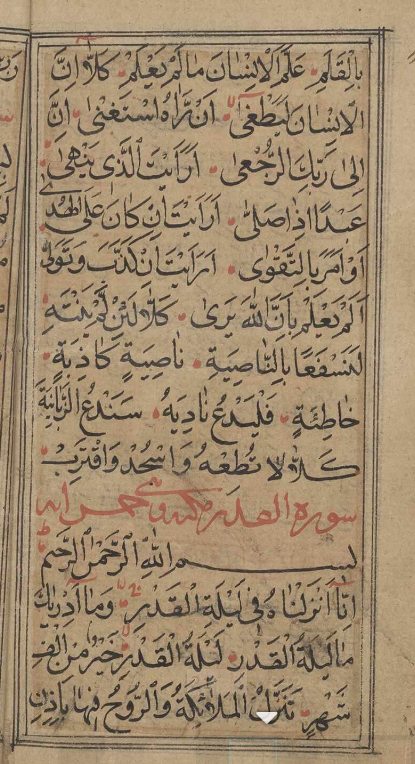 بِالْقَلَمِ عَلَّمَ الْاِنْسَانَ مَا لَمْ يَعْلَمْ كَلَّا اِنَّ
الْاِنْسَانَ لَيَطْغٰى اَنْ رَاٰهُ اسْتَغْنٰى اِنَّ
اِلٰى رَبِّكَ الرُّجْعٰى اَرَاَيْتَ الَّذِى يَنْهٰى
عَبْدًا اِذَا صَلّٰى اَرَاَيْتَ اِنْ كَانَ عَلَى الْهُدٰى
اَوْ اَمَرَ بِالتَّقْوٰى اَرَاَيْتَ اِنْ كَذَّبَ وَتَوَلّٰى
اَلَمْ يَعْلَمْ بِاَنَّ اللّٰهَ يَرٰى كَلَّا لَئِنْ لَمْ يَنْتَهِ
لَنَسْفَعًا بِالنَّاصِيَةِ نَاصِيَةٍ كَاذِبَةٍ
خَاطِئَةٍ فَلْيَدْعُ نَادِيَهُ سَنَدْعُ الزَّبَانِيَةَ
كَلَّا لَا تُطِعْهُ وَاسْجُدْ وَاقْتَرِبْ
سورة القدر مكية وهى خمس ايات
بِسْمِ اللّٰهِ الرَّحْمٰنِ الرَّحِيمِ
اِنَّا اَنْزَلْنَاهُ فِى لَيْلَةِ الْقَدْرِ وَمَا اَدْرٰيكَ
مَا لَيْلَةُ الْقَدْرِ لَيْلَةُ الْقَدْرِ خَيْرٌ مِنْ اَلْفِ
شَهْرٍ تَنَزَّلُ الْمَلٰئِكَةُ وَالرُّوحُ فِيهَا بِاِذْنِ